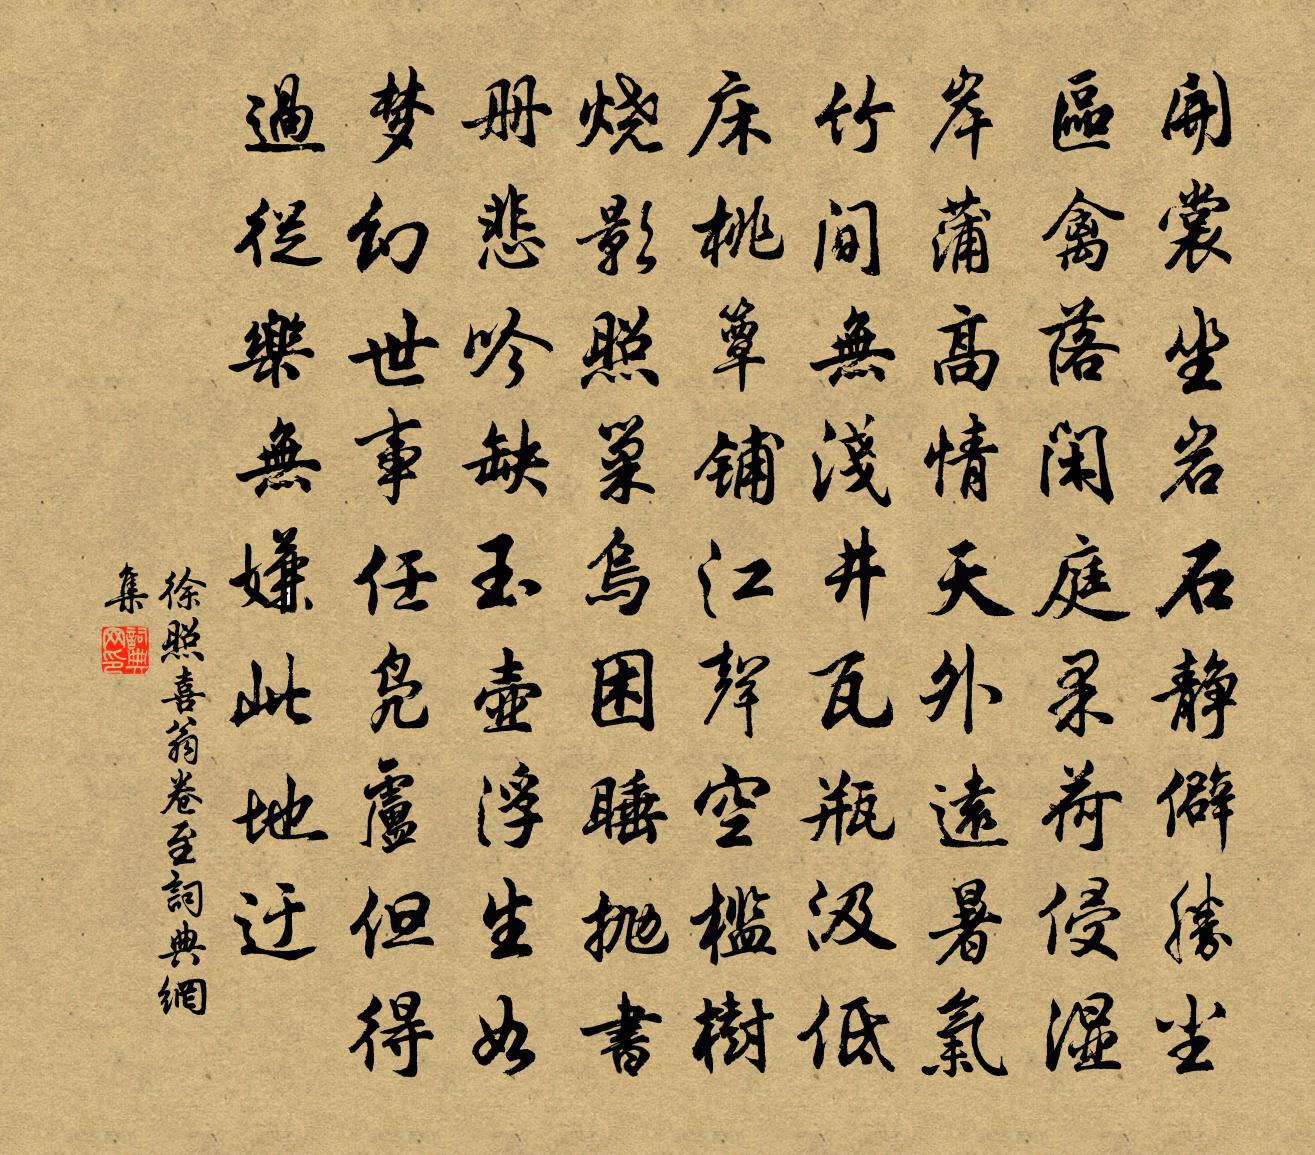 開裳坐岩石静僻勝尘
區禽落闲庭果荷侵湿
岸蒲高情天外遠暑氣
竹间無淺井瓦瓶汲低
床桃簟鋪江聲空檻樹
烧影照巢烏困睡抛書
册悲吟缺玉壺浮生如
梦幻世事任凫盧但得
過從樂無嫌此地迂
徐照喜翁卷至詞典網
集
詞典网印